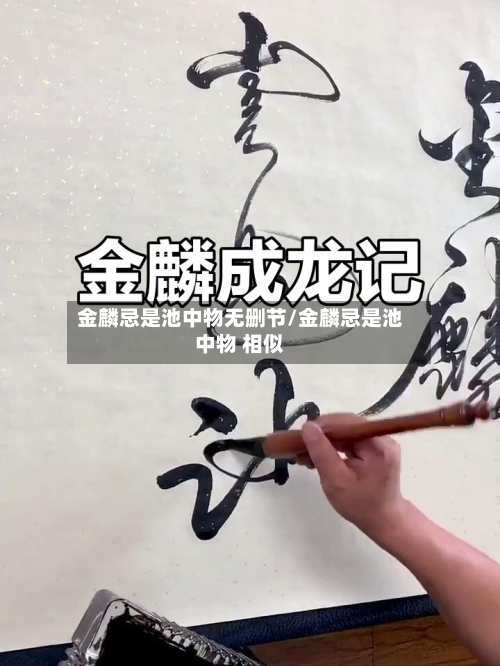 金麟成龙记
金麟忌是池中物无删节/金麟忌是池
中物 相似
金麟
豈是池